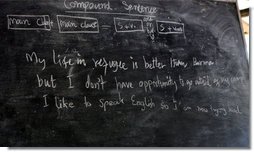 Compound Sentence
main clause main clause = S + V. S + Verb
My life in refugee is better than
but I don't have opportunity to go outside of my camp
I like to speak English so I'm now trying hard